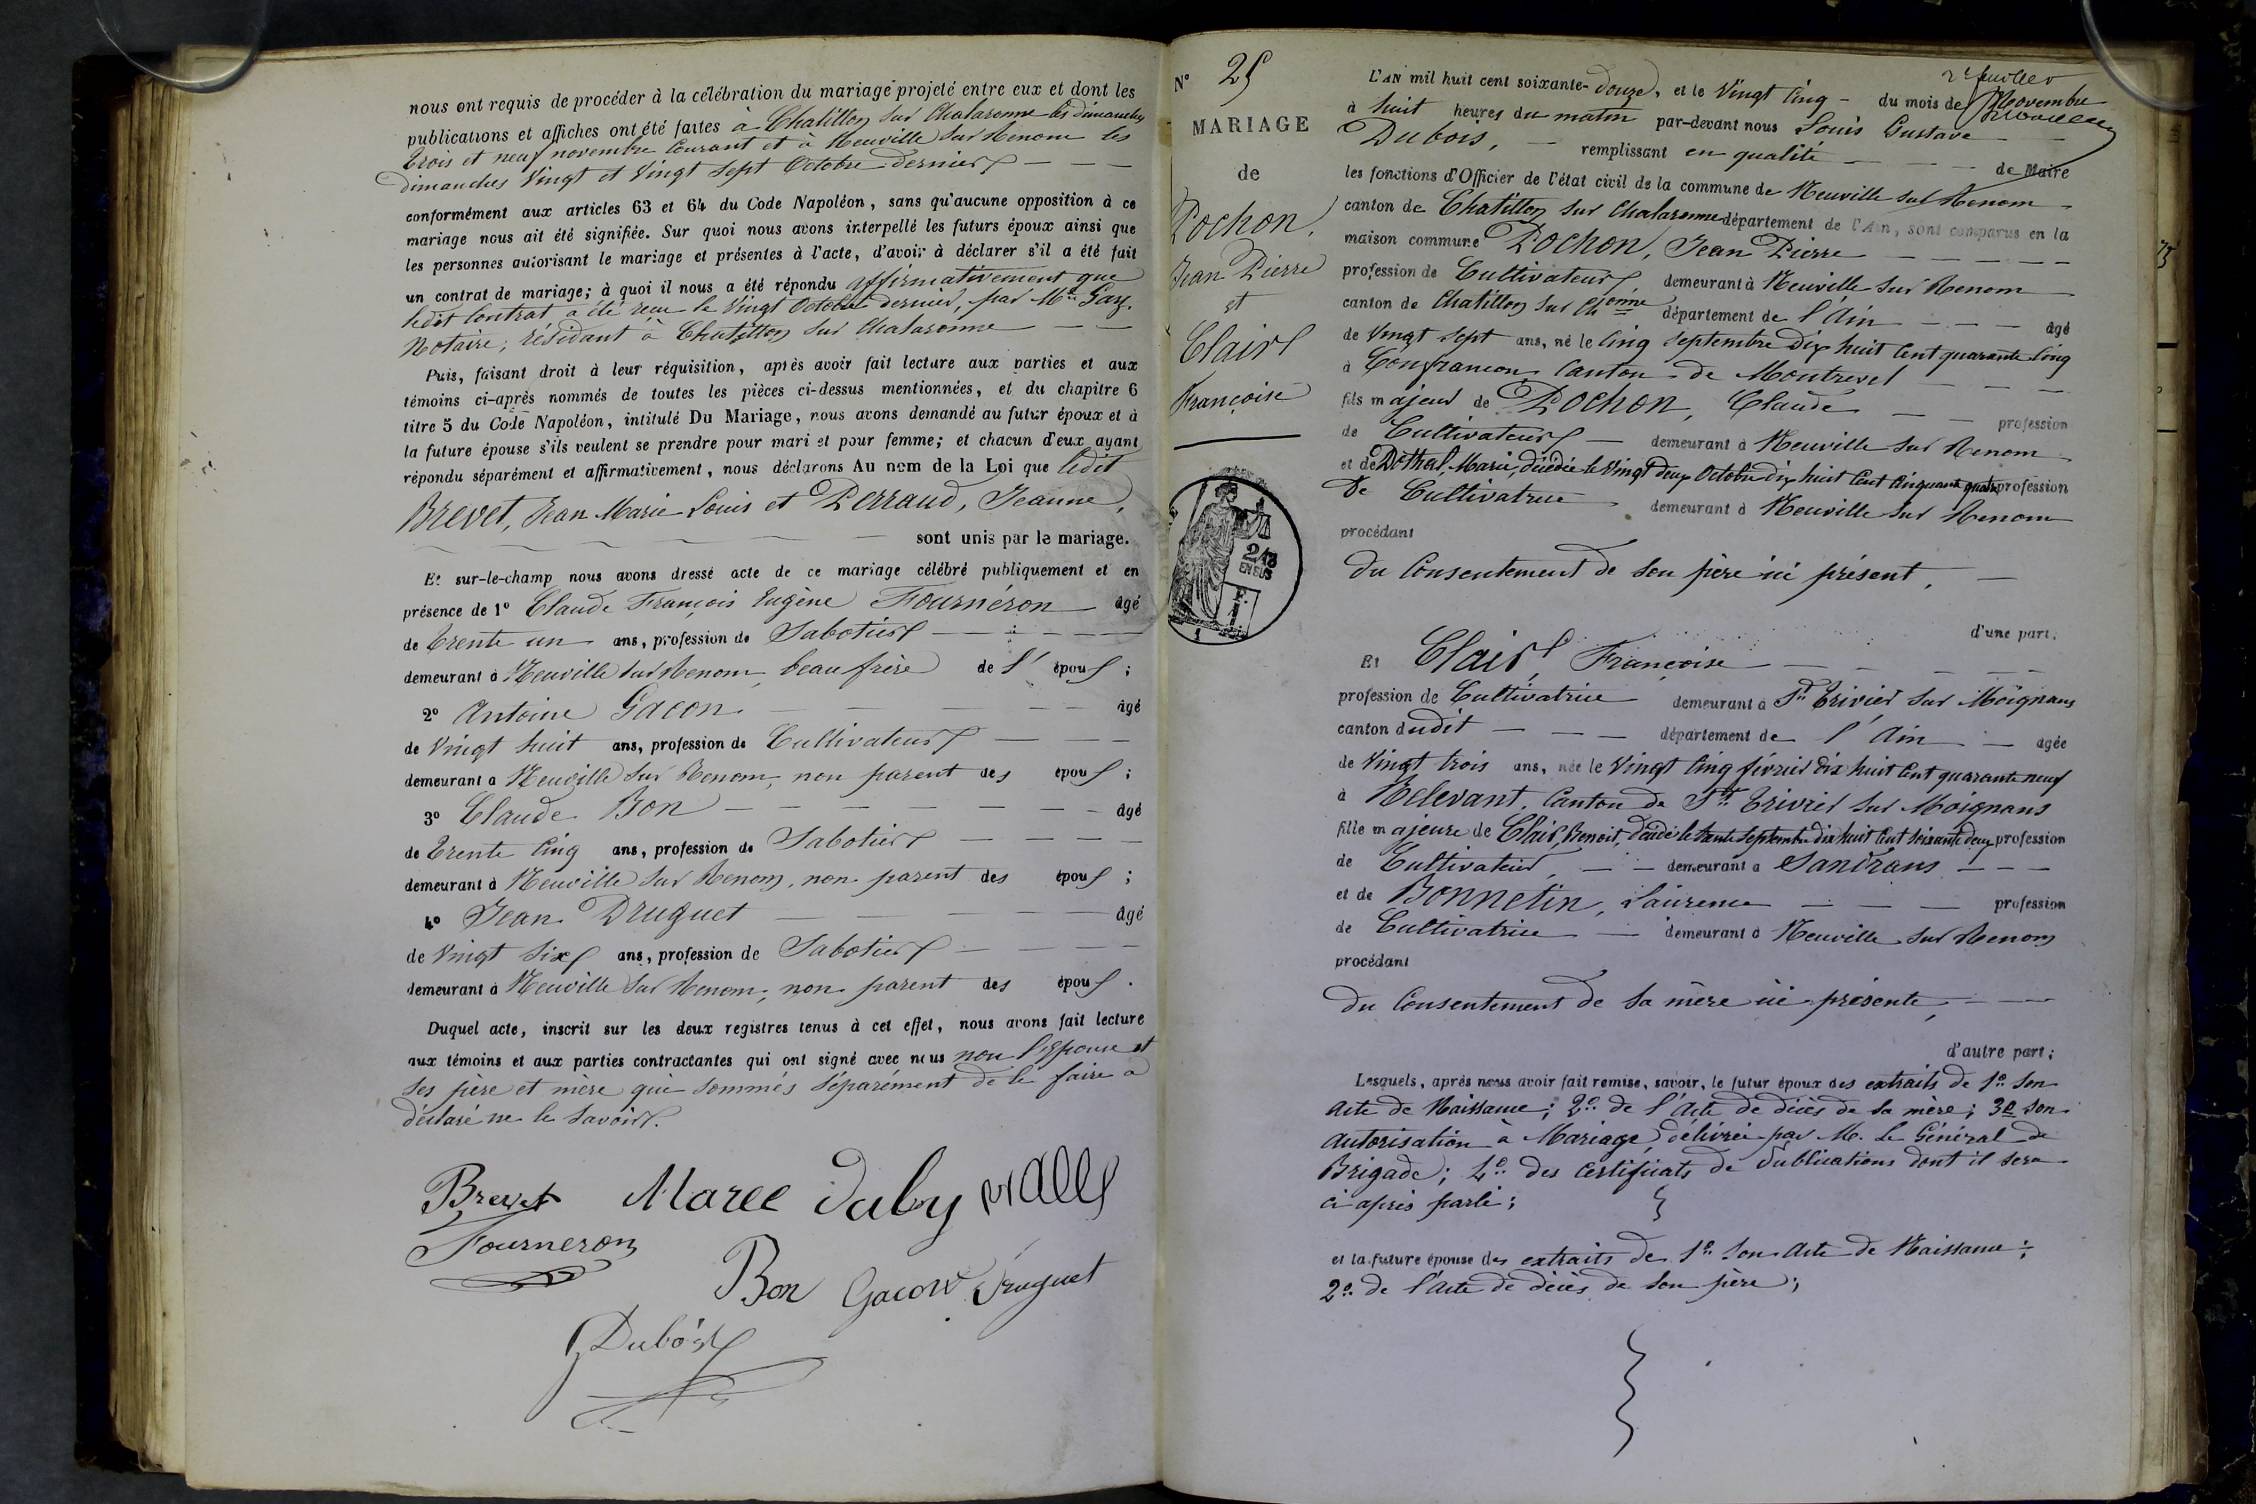 nous ont requis de procéder à la célébration du mariage projeté entre eux et dont les
publications et affiches ont été faites à Chatillon sur Chalaronne les dimanches
trois et neuf novembre Courant et à Neuville sur Renom les
dimanches Vingt et Vingt sept Octobre dernier
conformément aux articles 63 et 64 du Code Napoléon, sans qu'aucune opposition à ce
mariage nous ait été signifiée. Sur quoi nous avons interpellé les futurs époux ainsi que
les personnes autorisant le mariage et présentes à l'acte, d'avoir à déclarer s'il a été fait
un contrat de mariage; à quoi il nous a été répondu affirmativement que
ledit Contrat a été reçu le Vingt Octobre dernier, par Me Gay,
Notaire, résidant à Chatillon sur Chalaronne
Puis, faisant droit à leur réquisition, après avoir fait lecture aux parties et aux
témoins ci-après nommés de toutes les pièces ci-dessus mentionnées, et du chapitre 6
titre 5 du Code Napoléon, intitulé Du Mariage, nous avons demandé au futur époux et à
la future épouse s'ils veulent se prendre pour mari et pour femme; et chacun d'eux ayant
répondu séparément et affirmativement, nous déclarons Au nom de la Loi que ledit
Brevet, Jean Marie Louis et Perraud, Jeanne,
sont unis par le mariage.
Et sur-le-champ nous avons dressé acte de ce mariage célébré publiquement et en
présence de 1° Claude François Eugène Fournéron âgé
de trente un ans, profession de Sabotier
demeurant à Neuville sur Renom, beau frère de l' époux;
2° Antoine Gacon âgé
de Vingt huit ans, profession de Cultivateur
demeurant à Neuville sur Renom, non parent des époux;
3° Claude Bon âgé
de trente cinq ans, profession de Sabotier
demeurant à Neuville sur Renom, non parent des époux;
4° Jean Druguet âgé
de Vingt six ans, profession de Sabotier
demeurant à Neuville sur Renom, non parent des époux.
Duquel acte, inscrit sur les deux registres tenus à cet effet, nous avons fait lecture
aux témoins et aux parties contractantes qui ont signé avec nous non l'Epouse et
ses père et mère qui sommés séparément de le faire a
déclaré ne le savoir.
Brevet
Fourneron
Bon Gacon Druguet
Dubois
N° 25
MARIAGE
de
Pochon,
Jean Pierre
et
Clair
Françoise
2/10
EN SUS
L'AN mil huit cent soixante-douze, et le Vingt Cinq du mois de Novembre
à huit heures du matin par-devant nous Louis Gustave
Dubois, remplissant en qualité de Maire
les fonctions d'Officier de l'état civil de la commune de Neuville sur Renom
canton de Chatillon sur Chalaronne département de l'Ain, sont comparus en la
maison commune Pochon, Jean Pierre
profession de Cultivateur, demeurant à Neuville sur Renom
canton de Chatillon sur Chonne département de l'Ain âgé
de Vingt sept ans, né le Cinq septembre dix huit Cent quarante Cinq
à Confrançon Canton de Montrevel
fils majeur de Pochon, Claude profession
de Cultivateur demeurant à Neuville sur Renom
et de Marie, décédée le Vingt deux Octobre dix huit Cent Cinquante quatre profession
de Cultivatrice demeurant à Neuville sur Renom
procédant
du Consentement de son père ici présent,
d'une part;
Et Clair, Françoise
profession de Cultivatrice demeurant à St Trivier sur Moignans
canton dudit département de l'Ain agée
de Vingt trois ans, née le Vingt Cinq février dix huit Cent quarante neuf
à Relevant, Canton de St Trivier sur Moignans
fille majeure de Clair, Benoit, décédé le trente septembre dix huit Cent soixante deux profession
de Cultivateur, demeurant à Sandrans
et de Bonnetin, Laurence profession
de Cultivatrice demeurant à Neuville sur Renom
procédant
du Consentement de sa mère ici présente,
d'autre part;
Lesquels, après nous avoir fait remise, savoir, le futur époux des extraits de 1° son
Acte de Naissance; 2° de l'Acte de décès de sa mère; 3° son
autorisation à Mariage délivrée par M. le Général de
Brigade; 4° des Certificats de Publications dont il sera
ci après parlé;
et la future épouse des extraits de 1° son Acte de Naissance;
2° de l'Acte de décès de son père;